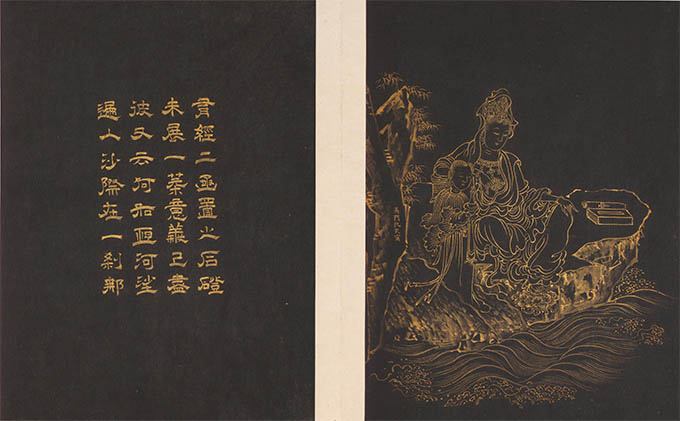 有經二函置之石磴
未展一葉意義已盡
彼又云何如恆河沙
遍入沙際在一剎那